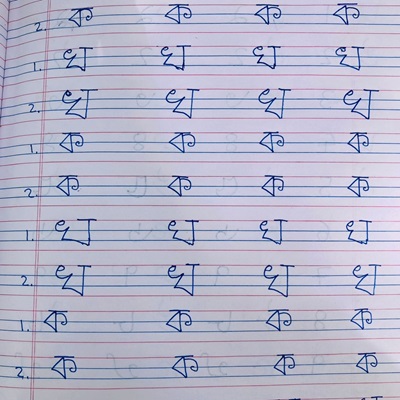 2. ক ক ক ক
1. খ খ খ খ
2. খ খ খ খ
1. ক ক ক ক
2. ক ক ক ক
1. খ খ খ খ
2. খ খ খ খ
1. ক ক ক ক
2. ক ক ক ক